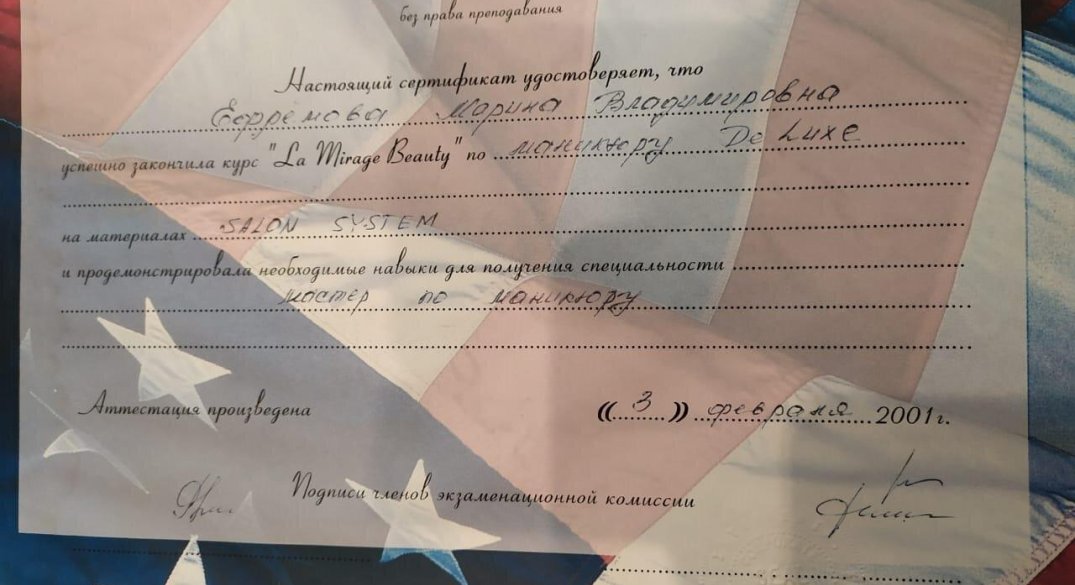 без права преподавания
Настоящий сертификат удостоверяет, что
Ефремова Марина Владимировна
успешно закончила курс "La Mirage Beauty" по маникюру De Luxe
на материалах SALON SYSTEM
и продемонстрировала необходимые навыки для получения специальности
мастер по маникюру
Аттестация произведена ((3)) февраля 2001г.
Подписи членов экзаменационной комиссии